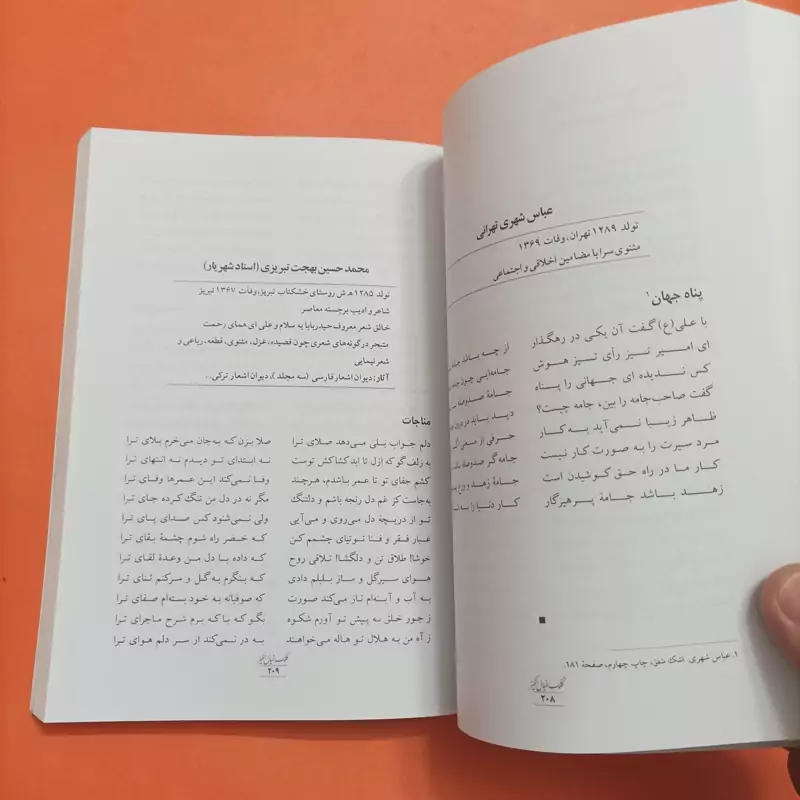 عباس شهری تهرانی
تولد ۱۲۸۹ تهران، وفات ۱۳۶۹
مثنوی سرا با مضامین اخلاقی و اجتماعی
پناه جهان۱
با علی(ع) گفت آن یکی در رهگذار
از چه باشد جامه
ای امیر نیز رأی تیز هوش
جامه‌ایی چون
کس ندیده ای جهانی را پناه
جامهٔ صدوصله
گفت صاحب‌جامه را بین، جامه چیست؟
دید باید در درون
ظاهر زیبا نمی‌آید به کار
حرفی از معنی اگر
مرد سیرت را به صورت کار نیست
جامه گر صدوصله باشد
کار ما در راه حق کوشیدن است
جامهٔ زهد و ورع
زهد باشد جامهٔ پرهیزگار
کار دنیا را به
۱. عباس شهری، اشک شفق، چاپ چهارم، صفحهٔ ۱۸۱.
۲۰۸
محمد حسین بهجت تبریزی (استاد شهریار)
تولد ۱۲۸۵ هـ ش روستای خشکناب تبریز، وفات ۱۳۶۷ تبریز
شاعر و ادیب برجسته معاصر
خالق شعر معروف حیدربابا یه سلام و علی ای همای رحمت
متبحر در گونه‌های شعری چون قصیده، غزل، مثنوی، قطعه، رباعی و
شعر نیمایی
آثار: دیوان اشعار فارسی (سه مجلد)، دیوان اشعار ترکی...
مناجات
دلم جواب بلی می‌دهد صلای ترا
صلا بزن که به‌جان می‌خرم بلای ترا
به زلف‌گو که ازل تا ابد کشاکش توست
نه ابتدای تو دیدم نه انتهای ترا
کشم جفای تو تا عمر باشدم، هرچند
وفا نمی‌کند این عمرها وفای ترا
به‌جاست کز غم دل رنجه باشم و دلتنگ
مگر نه در دل من تنگ کرده جای ترا
تو از دریچهٔ دل می‌روی و می‌آیی
ولی نمی‌شنود کس صدای پای ترا
غبار فقر و فنا توتیای چشمم کن
که خضر راه شوم چشمهٔ بقای ترا
خوشا! طلاق تن و دلگشا! تلاقی روح
که داده با دل من وعدهٔ لقای ترا
هوای سیر گل و ساز بلبلم دادی
که بنگرم به گل و سرکنم ثنای ترا
به آب و آینه‌ام ناز می‌کند صورت
که صوفیانه به خود بسته‌ام صفای ترا
ز جور خلق به پیش تو آورم شکوه
بگو که با که برم شرح ماجرای ترا
ز آه من به هلال تو هاله می‌خواهند
به در نمی‌کند از سر دلم هوای ترا
۲۰۹